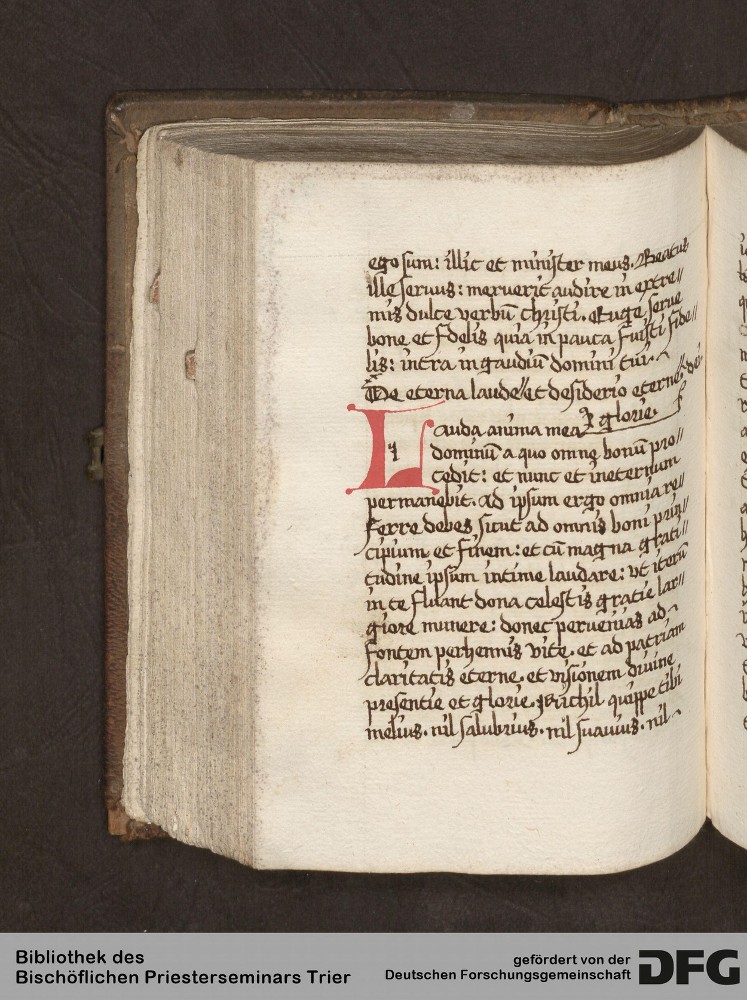 ego sum: illic et minister meus. Beatus
ille seruus: meruerit audire in extre//
mis dulce verbū christi. Euge serue
bone et fidelis quia in pauca fuisti fide//
lis: intra in gaudiū domini tui.
De eterna laude et desiderio eterne dei
glorie.
Lauda anima mea
dominū a quo omne bonū pro//
cedit: et nunc et ineternum
permanebit. Ad ipsum ergo omnia re//
ferre debes sicut ad omnis boni prin//
cipium et finem: et cū magna grati//
tudine ipsum intime laudare: vt iterū
in te fluant dona celestis gratie lar//
giore munere: donec peruenias ad
fontem perhennis vite. et ad patriam
claritatis eterne. et visionem diuine
presentie et glorie. Nichil quippe tibi
melius. nil salubrius. nil suauius. nil
Bibliothek des
Bischöflichen Priesterseminars Trier
gefördert von der
Deutschen Forschungsgemeinschaft
DFG